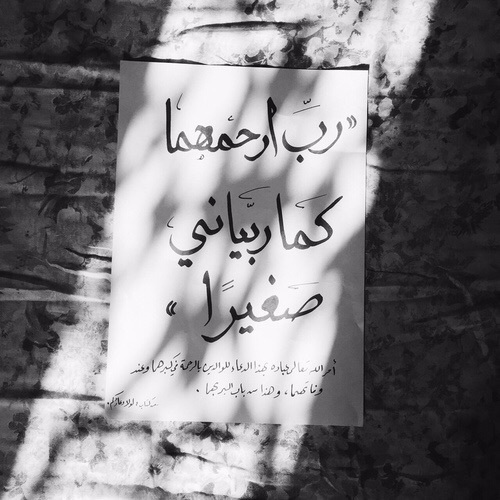 «ربَّ ارحمهما
كَما ربَّياني
صَغيرًا»
أمر الله تعالى عباده بهذا الدعاء للوالدين بالرحمة في كبرهما وعند
وفاتهما، وهذا من باب البر بهما.